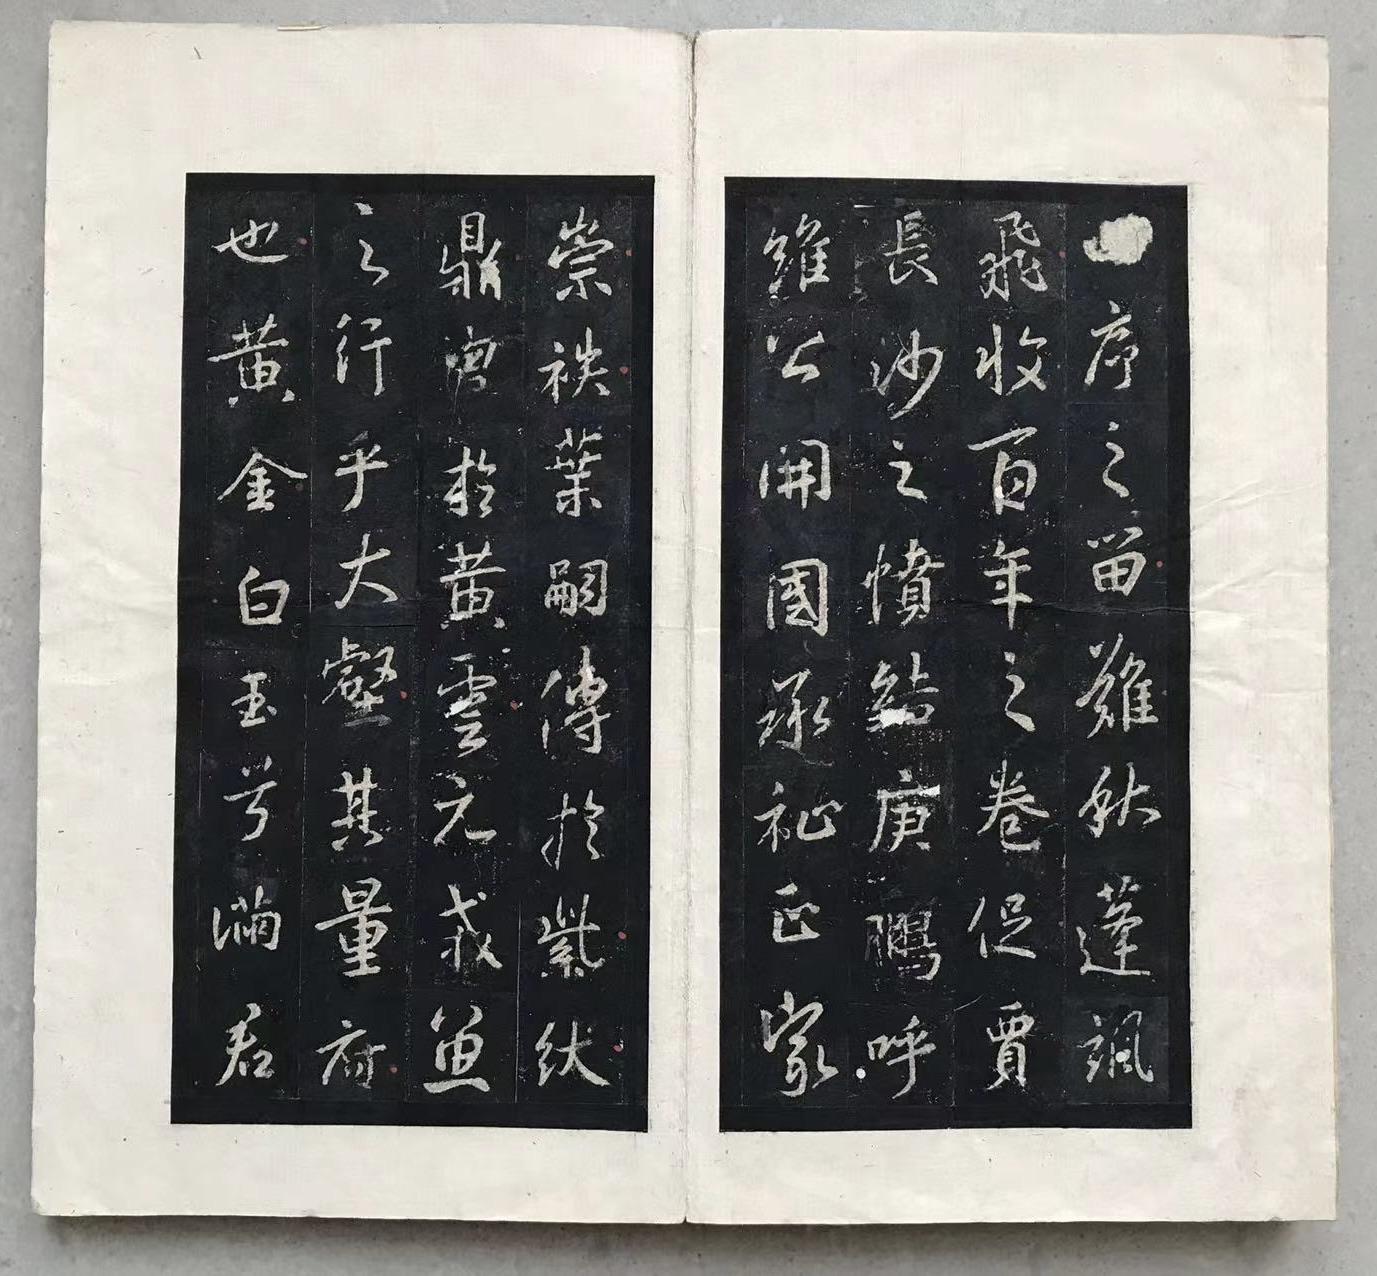 序之留難秋蓬颯
飛收百年之卷促賈
長沙之憤結庚鵬呼
雖公開國承祉正家
崇袟葉嗣傳於紫紱
鼎於黃雲元戎魚
之行乎大壑其量府
也黃金白玉兮滿君